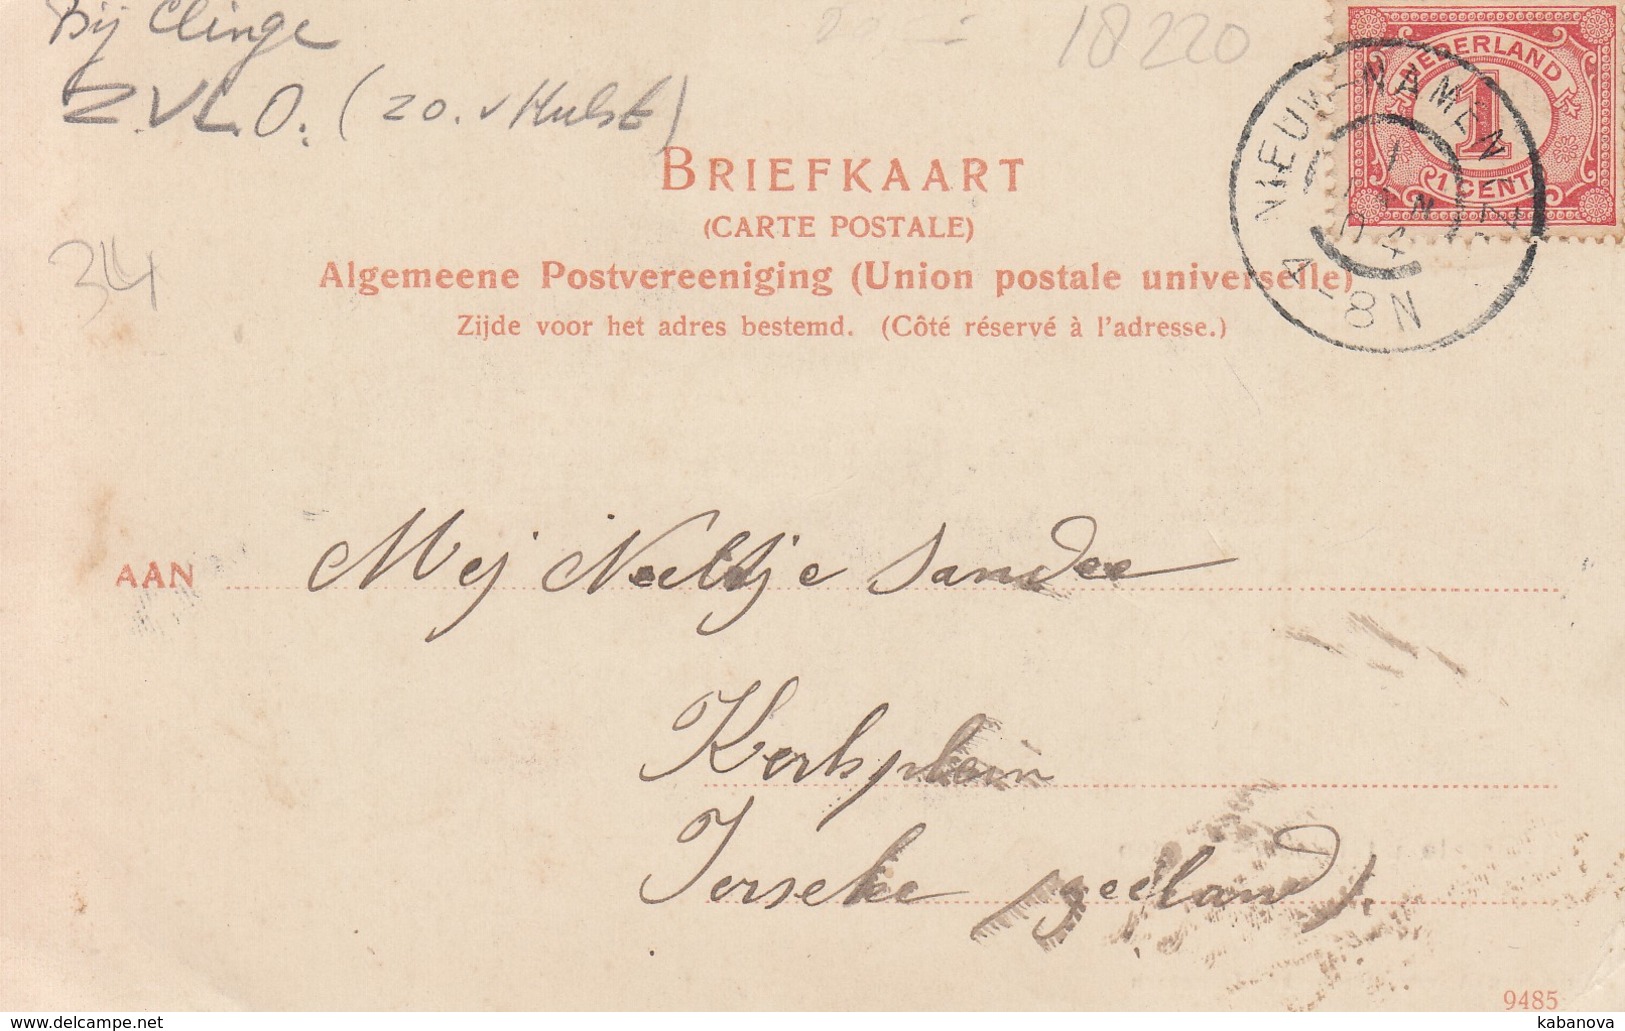 Bij Clinge
Z.VL.O. (ZO. v Hulst)
18220
34
NEDERLAND
1
1 CENT
NIEUW-NAMEN
1 JAN 04
4-8N
BRIEFKAART
(CARTE POSTALE)
Algemeene Postvereeniging (Union postale universelle)
Zijde voor het adres bestemd. (Côté réservé à l'adresse.)
AAN Mej Neeltje Sandee
Kerkplein
Ierseke (zeeland).
9485
kabanova